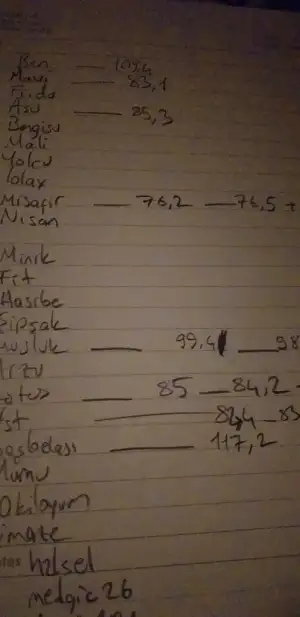 Ben — 109,4
Mavi — 83,1
Fida
Asu — 85,3
Bengisu
Mali
Yolcu
olax
Misafir — 76,2 — 76,5 +
Nisan
Minik
Fit
Hasibe
Şipşak
usluk — 99,4 — 98
rzu
atos — 85 — 84,2 -
st — 82,4 — 83
aşbelası — 117,2
Mumu
Okiloyum
imate
hzlsel
medgic26